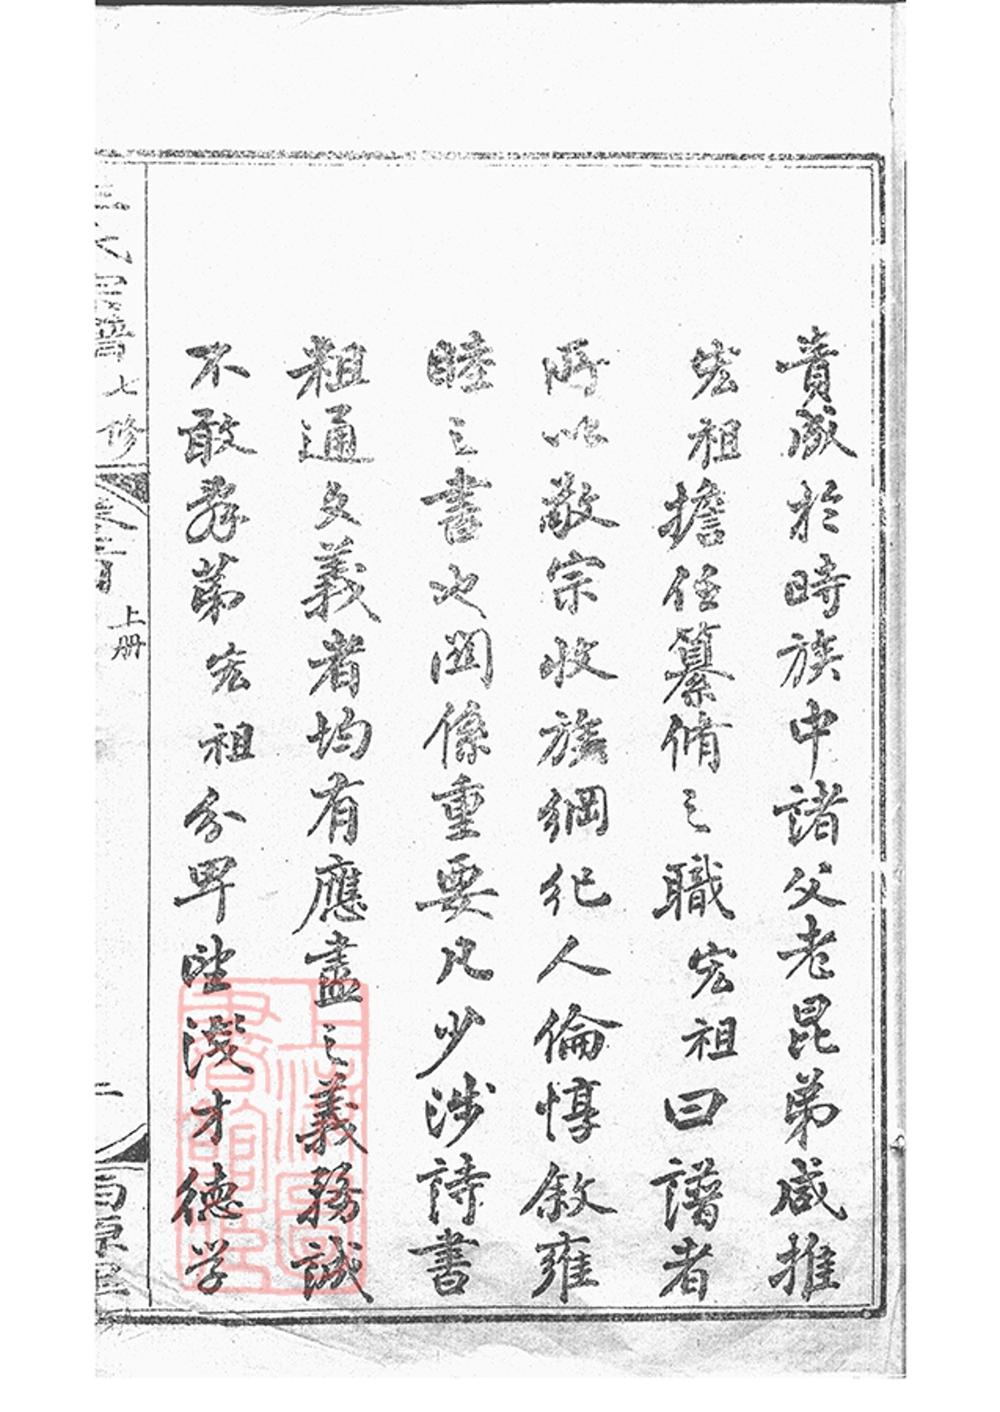 責成於時族中諸父老昆弟咸推
宏祖擔任纂脩之職宏祖曰譜者
所以敬宗收族綱紀人倫惇敘雍
睦之書也関係重要凡少涉詩書
粗通文義者均有應盡之義務誠
不敢辞第宏祖分卑望淺才德学
氏宗譜 七修
卷首 上册
二
上海圖書館藏